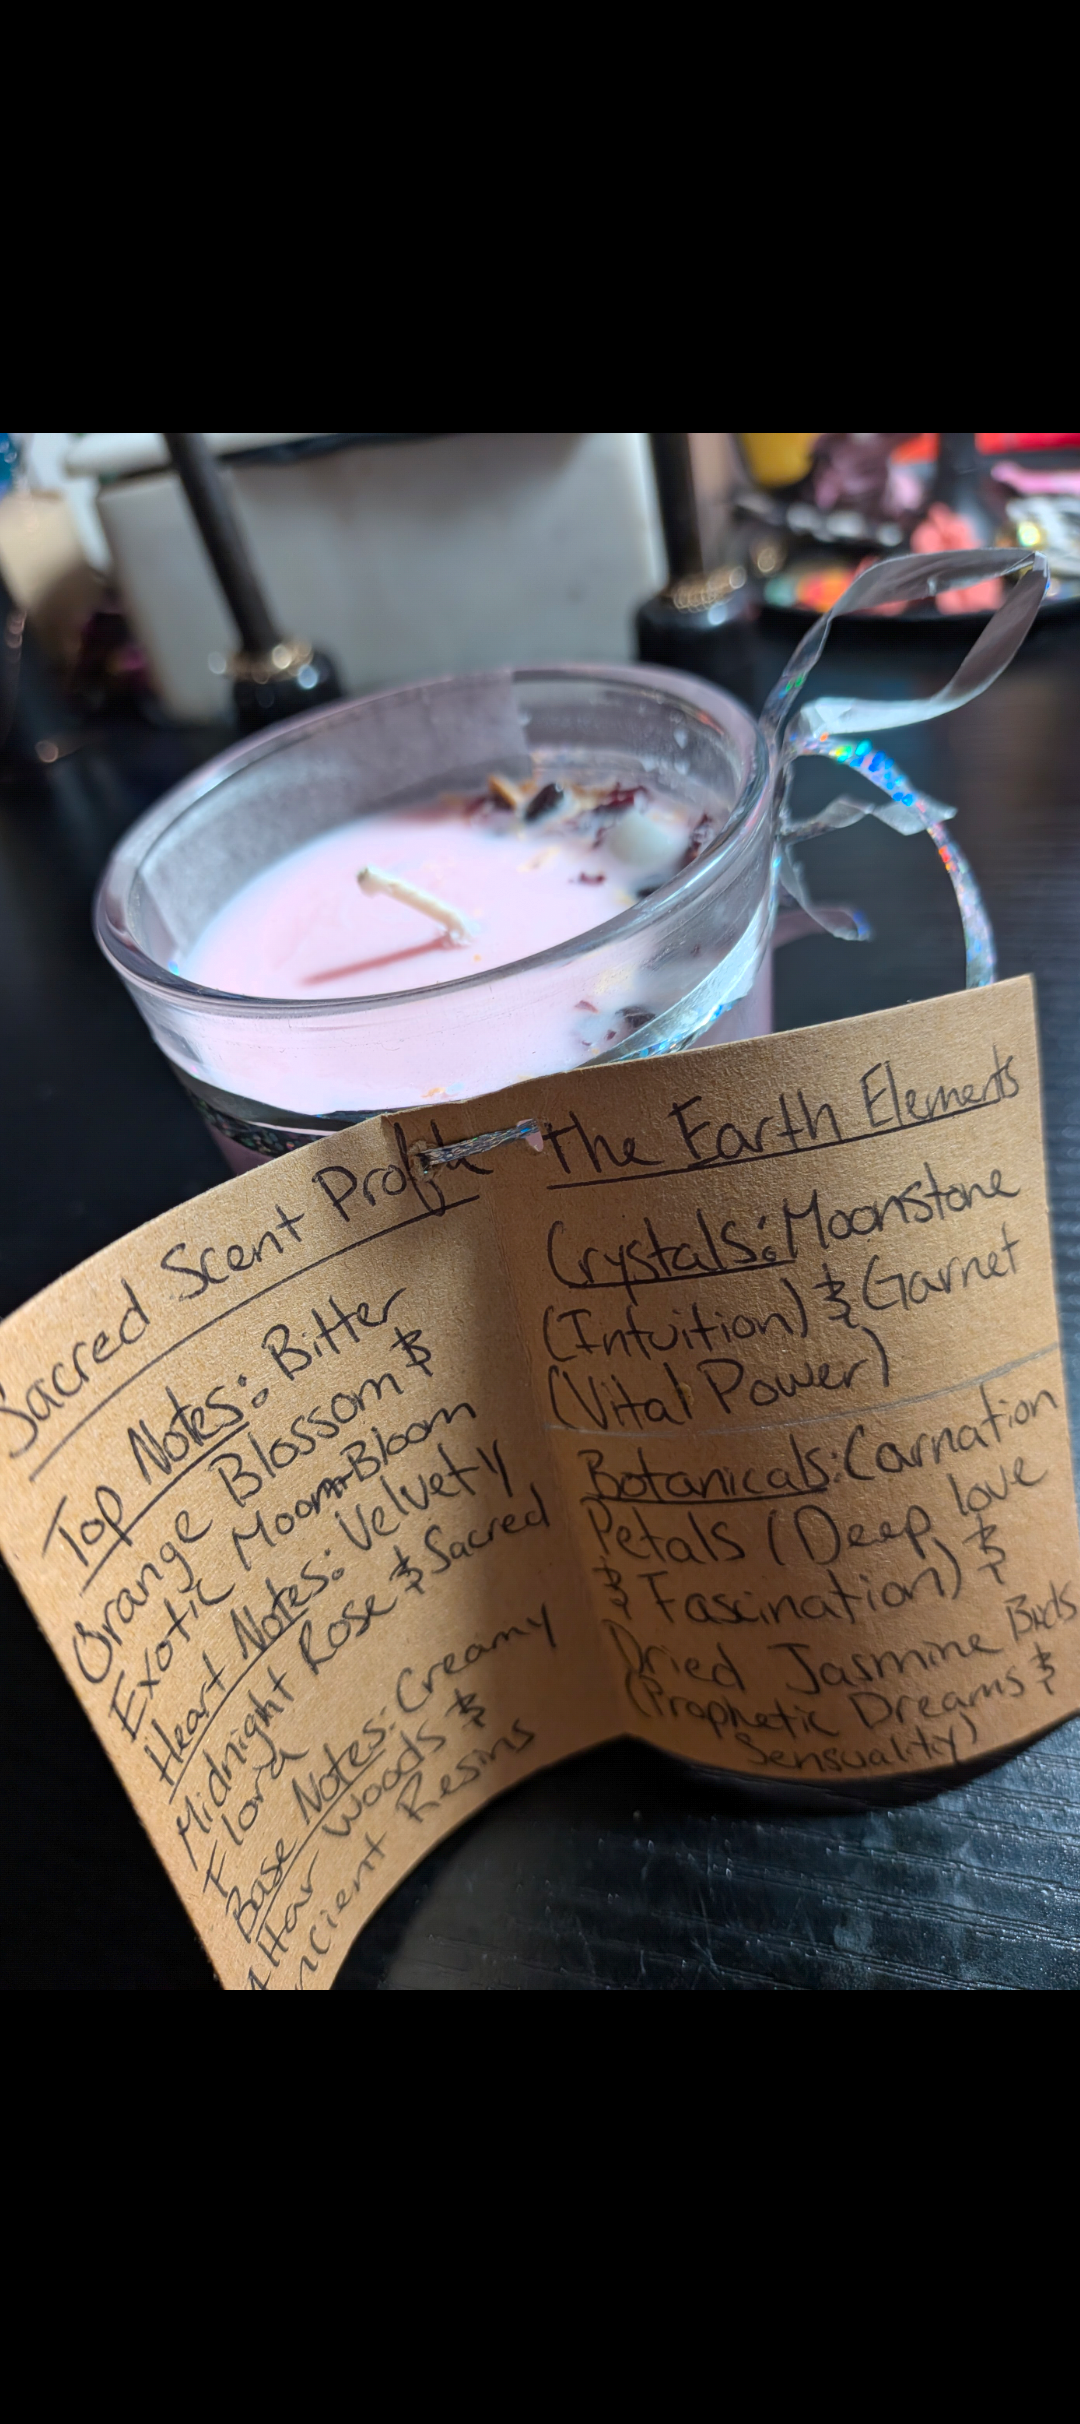 Sacred Scent Profile
Top Notes: Bitter
Orange Blossom &
Exotic Moon-Bloom
Heart Notes: Velvety
Midnight Rose & Sacred
Flora
Base Notes: Creamy
Altar Woods &
Ancient Resins
The Earth Elements
Crystals: Moonstone
(Intuition) & Garnet
(Vital Power)
Botanicals: Carnation
Petals (Deep love
& Fascination) &
Dried Jasmine Buds
(Prophetic Dreams &
Sensuality)